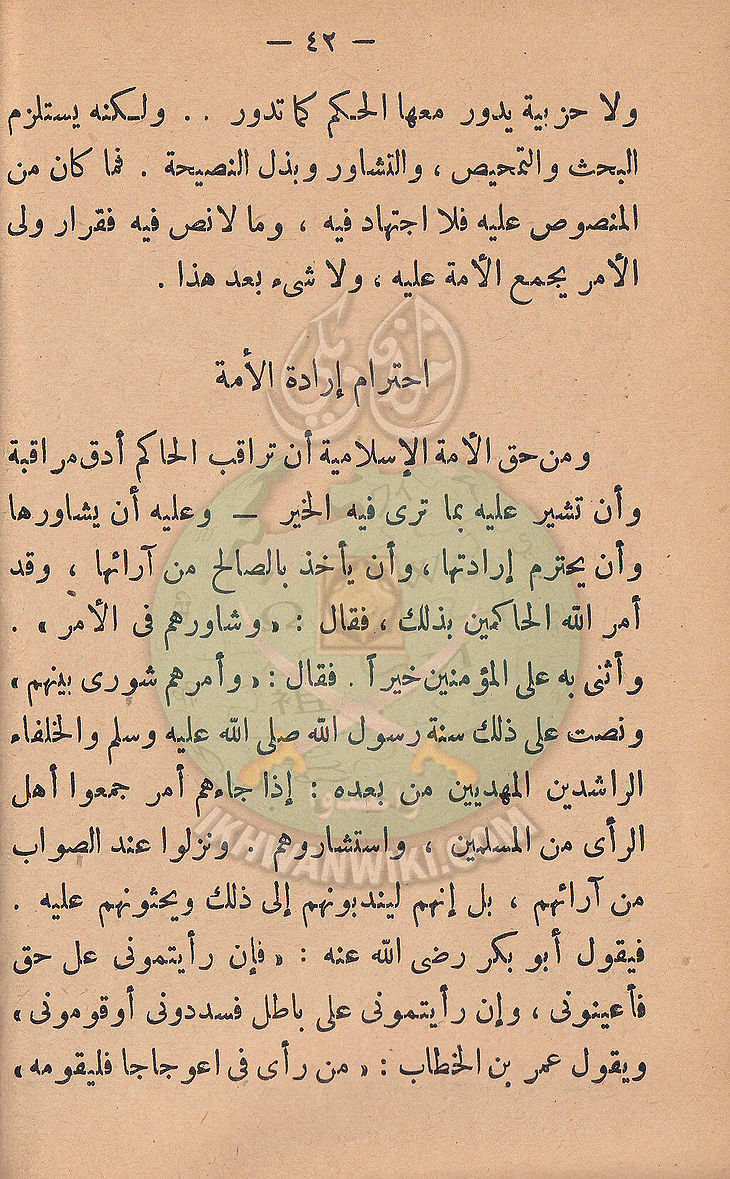 — ٤٢ —
ولا حزبية يدور معها الحكم كما تدور . . ولكنه يستلزم
البحث والتمحيص ، والتشاور وبذل النصيحة . فما كان من
المنصوص عليه فلا اجتهاد فيه ، وما لا نص فيه فقرار ولى
الأمر يجمع الأمة عليه ، ولا شىء بعد هذا .
احترام إرادة الأمة
ومن حق الأمة الإسلامية أن تراقب الحاكم أدق مراقبة
وأن تشير عليه بما ترى فيه الخير — وعليه أن يشاورها
وأن يحترم إرادتها ، وأن يأخذ بالصالح من آرائها ، وقد
أمر الله الحاكمين بذلك ، فقال : « وشاورهم فى الأمر » .
وأثنى به على المؤمنين خيراً . فقال : « وأمرهم شورى بينهم »
ونصت على ذلك سنة رسول الله صلى الله عليه وسلم والخلفاء
الراشدين المهديين من بعده : إذا جاءهم أمر جمعوا أهل
الرأى من المسلمين ، واستشاروهم . ونزلوا عند الصواب
من آرائهم ، بل إنهم ليندبونهم إلى ذلك ويحثونهم عليه .
فيقول أبو بكر رضى الله عنه : « فإن رأيتمونى عل حق
فأعينونى ، وإن رأيتمونى على باطل فسددونى أوقومونى »
ويقول عمر بن الخطاب : « من رأى فى اعوجاجا فليقومه »
إخوان ويكي
IKHWANWIKI.COM